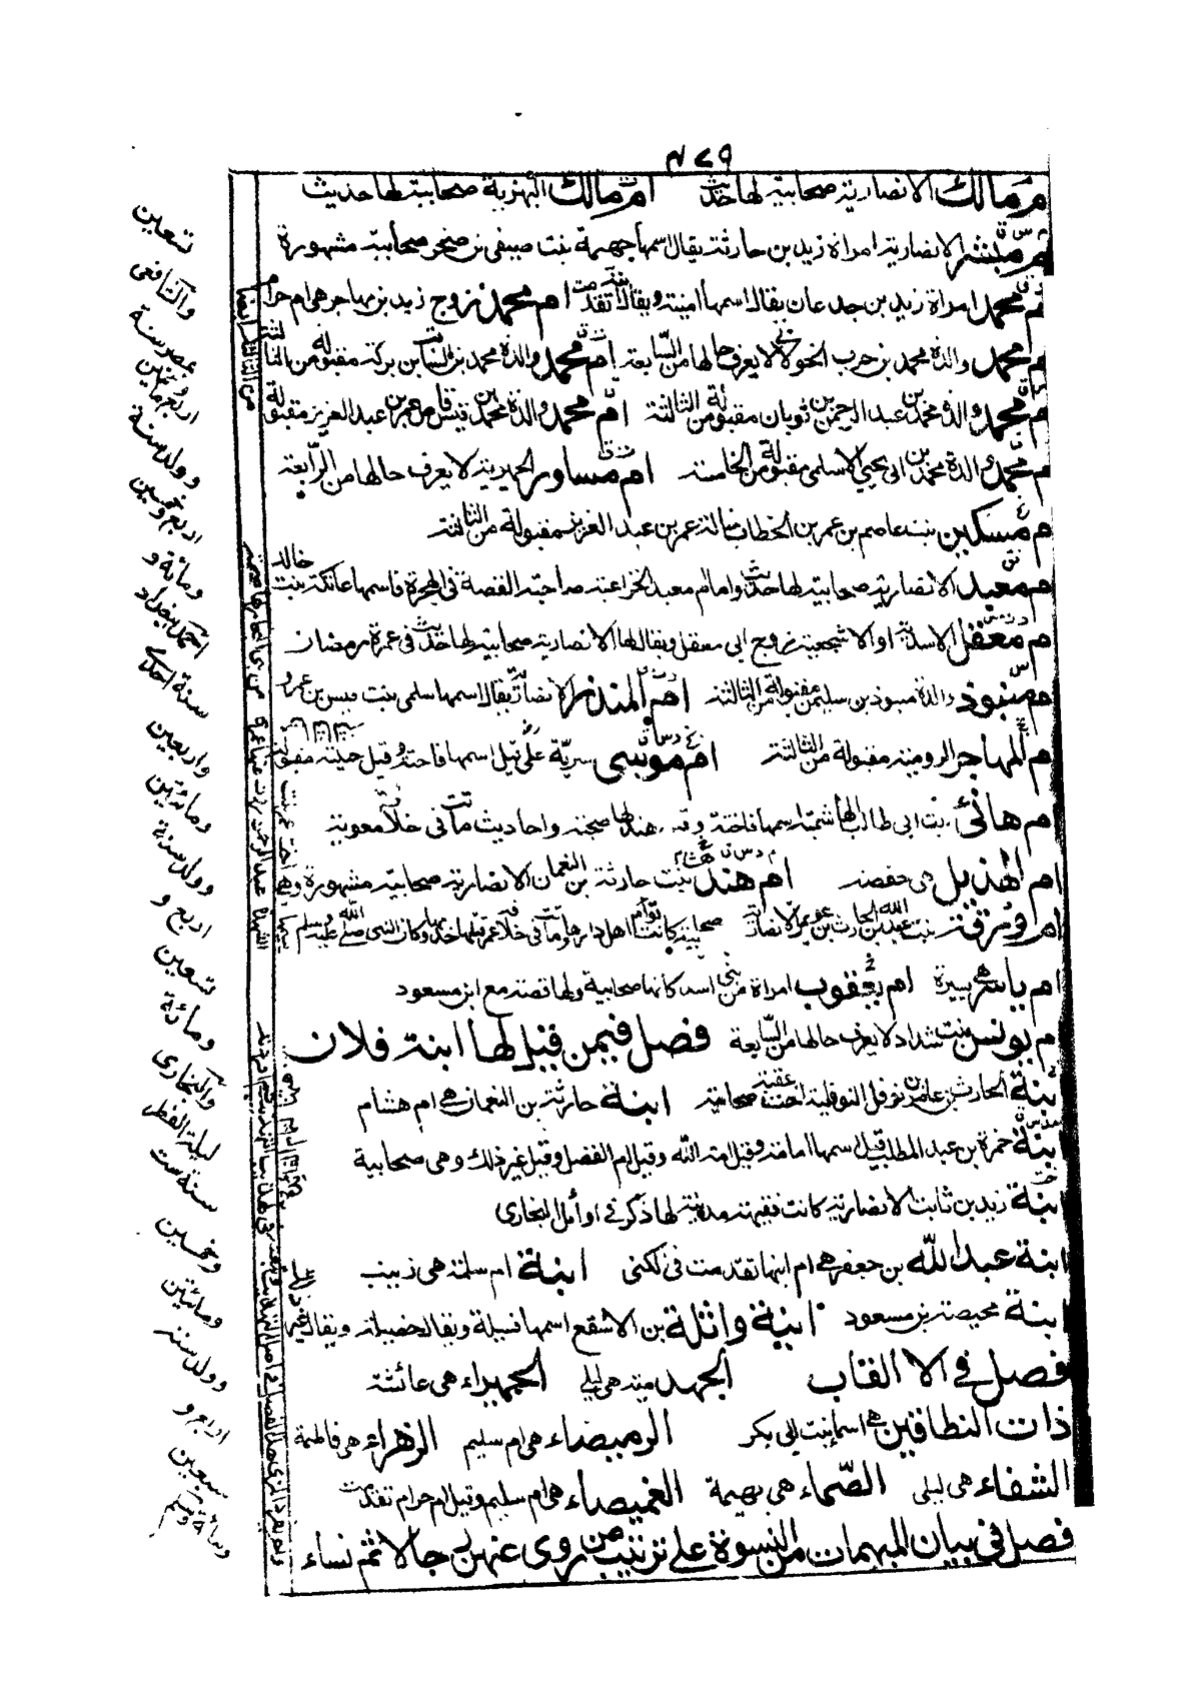 ٤٧٩
ام مالك الانصارية صحابية لها حديث ام مالك البهزية صحابية لها حديث
ام مبشر الانصارية امرأة زيد بن حارثة يقال اسمها جهيمة بنت صيفى بن صخر صحابية مشهورة
ام محمد امرأة زيد بن جدعان يقال اسمها امينة ويقال تقدمت ام محمد زوج زيد بن مهاجر هى ام حرام
ام محمد والدة محمد بن حرب الخولانى لا يعرف حالها من السابعة ام محمد والدة محمد بن السائب بن بركة مقبولة من الثالثة
ام محمد والدة محمد بن عبد الرحمن بن ثوبان مقبولة من الثالثة ام محمد والدة محمد بن قيس قاص عمر بن عبد العزيز مقبولة
ام محمد والدة محمد بن ابى يحيى الاسلمى مقبولة من الخامسة ام مساور الحميرية لا يعرف حالها من الرابعة
ام مسكين بنت عاصم بن عمر بن الخطاب خالة عمر بن عبد العزيز مقبولة من الثالثة
ام معبد الانصارية صحابية لها حديث واما ام معبد الخزاعية صاحبة القصة فى الهجرة فاسمها عاتكة بنت خالد
ام معقل الاسدية او الاشجعية زوج ابى معقل ويقال لها الانصارية صحابية لها حديث فى عمرة رمضان
ام منبوذ والدة منبوذ بن سليمن مقبولة من الثالثة ام المنذر الانصارية يقال اسمها سلمى بنت قيس بن عمرو
ام المهاجر الرومية مقبولة من الثالثة ام موسى سرية على قيل اسمها فاختة وقيل حبيبة مقبولة
ام هانئ بنت ابى طالب الهاشمية اسمها فاختة وقيل هند لها صحبة واحاديث ماتت فى خلافة معوية
ام الهذيل هى حفصة ام هشام بنت حارثة بن النعمان الانصارية صحابية مشهورة وهى
ام ورقة بنت عبد الله بن الحارث بن عويمر الانصارية صحابية كانت تؤم اهل دارها وماتت فى خلافة عمر قتلها خدمها وكان النبى صلى الله عليه وسلم يسميها الشهيدة
ام ياسر هى يسيرة ام يعقوب امرأة من بنى اسد كانها صحابية ولها قصة مع ابن مسعود
ام يونس بنت شداد لا يعرف حالها من السابعة فصل فيمن قيل لها ابنة فلان
ابنة الحارث بن عامر بن نوفل النوفلية اخت عقبة صحابية ابنة حارثة بن النعمان هى ام هشام
ابنة حمزة بن عبد المطلب قيل اسمها امامة وقيل امة الله وقيل ام الفضل وقيل غير ذلك وهى صحابية
ابنة زيد بن ثابت الانصارية كانت فقيهة مدنية لها ذكر فى اوائل البخارى
ابنة عبد الله بن جعفر هى ام ابيها تقدمت فى لكنى ابنة ام سلمة هى زينب
ابنة محيصة بن مسعود ابنة واثلة بن الاسقع اسمها فسيلة ويقال خصيلة ويقال غير ذلك
فصل فى الالقاب الجهدمية هى ليلى الحميراء هى عائشة
ذات النطاقين هى اسماء بنت ابى بكر الرميصاء هى ام سليم الزهراء هى فاطمة
الشفاء هى ليلى الصماء هى بهيمة الغميصاء هى ام سليم وقيل ام حرام تقدمت
فصل فى بيان المبهمات من النسوة على ترتيب من روى عنهن رجالا ثم نساء
من الثالثة ايضا
تسعين
والشافعى
بمصر سنة
اربع وماتين
وولد سنة
اربع وخمسين
ومائة و
احمد ببغداد
سنة احدى
واربعين
ومائتين
وولد سنة
اربع و
تسعين
ومائة
والبخارى
ليلة الفطر
سنة ست
وخمسين
ومائتين
وولد سنة
اربع و
تسعين
ومائة